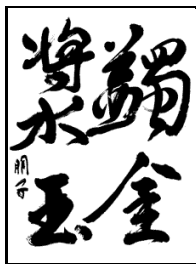 蠲金
漿玉
朋子